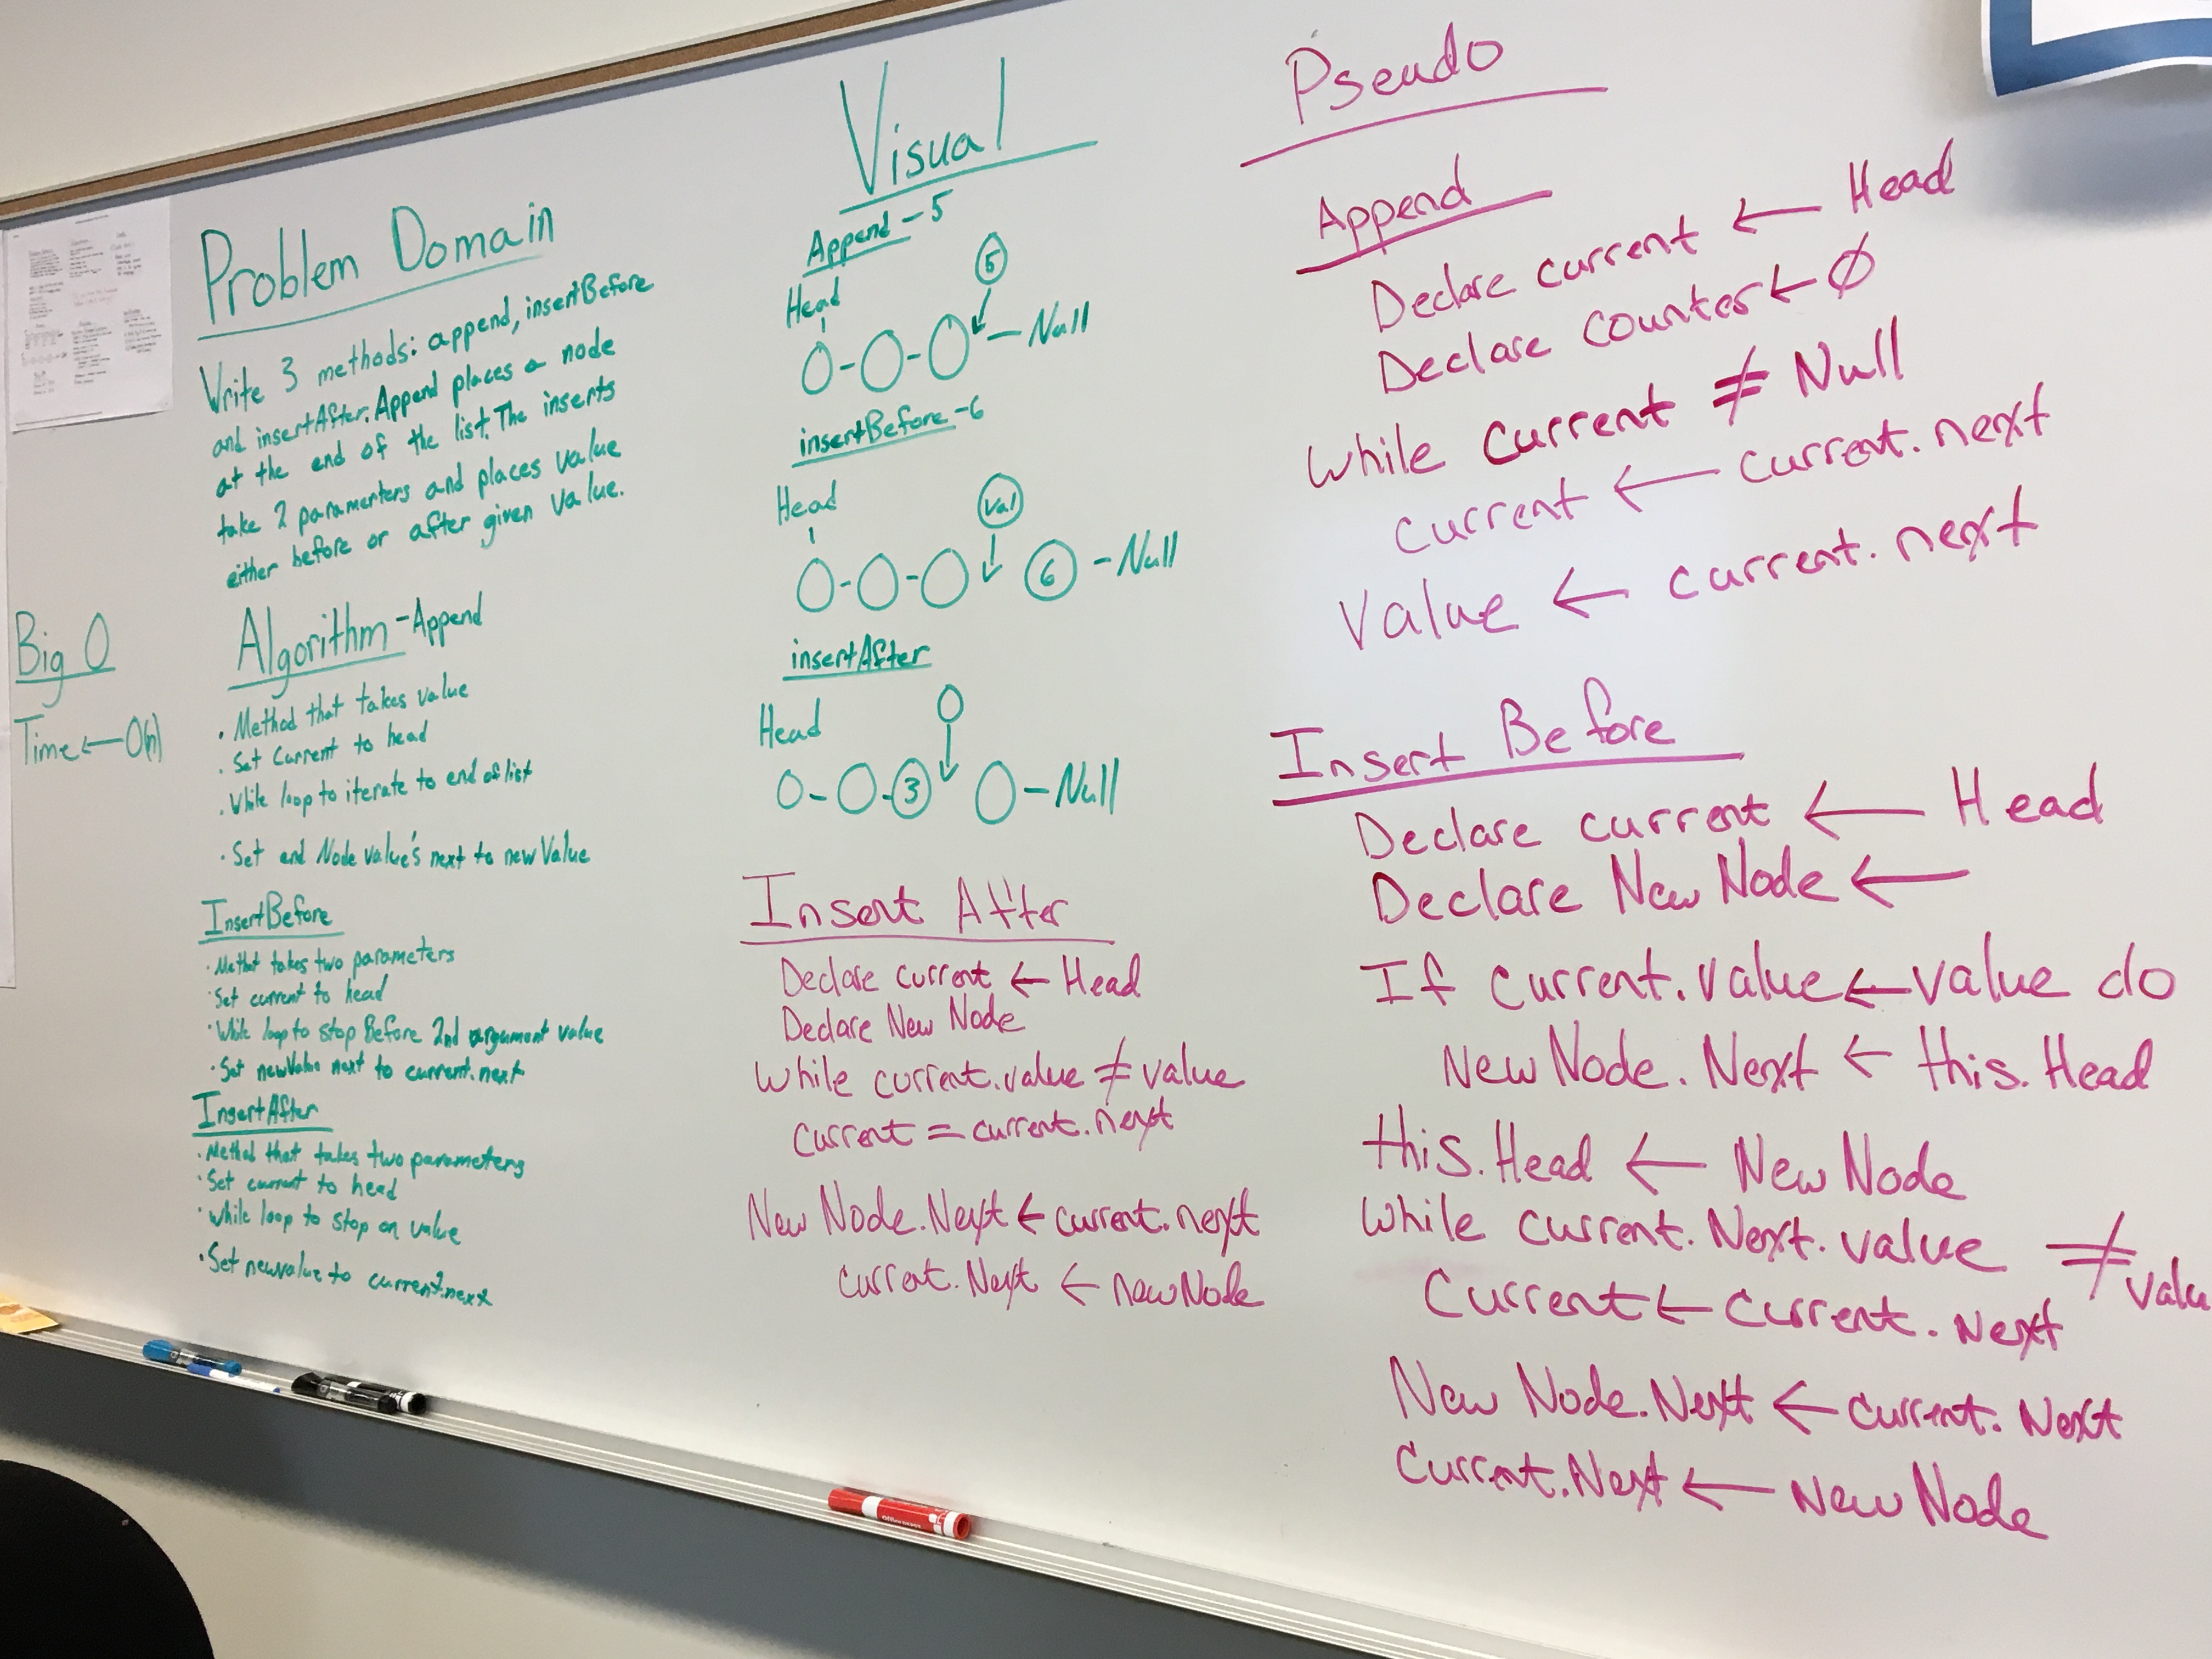 Problem Domain
Write 3 methods: append, insertBefore
and insertAfter. Append places a node
at the end of the list. The inserts
take 2 paramerters and places value
either before or after given value.
Big O
Time ← O(n)
Algorithm - Append
· Method that takes value
· Set Current to head
· While loop to iterate to end of list
· Set end Node value's next to newValue
InsertBefore
· takes two parameters
· Set current to head
· While loop to stop Before 2nd argument value
· Set newValue next to current.next
InsertAfter
· Method that takes two parameters
· Set current to head
· while loop to stop on value
· Set newvalue to current.next
Visual
Append - 5
Head
5
Null
insertBefore - 6
Head
Val
6 - Null
insertAfter
Head
3
Null
Insert After
Declare current ← Head
Declare New Node
While current.value ≠ value
Current = current.next
New Node.Next ← current.next
current.Next ← newNode
Pseudo
Append
Declare current ← Head
Declare counter ← Ø
While Current ≠ Null
Current ← current.next
Value ← current.next
Insert Before
Declare current ← Head
Declare New Node ←
If current.value ← value do
New Node.Next ← this.Head
this.Head ← New Node
While current.Next.value ≠ valu
Current ← Current.Next
New Node.Next ← Current.Next
Current.Next ← New Node